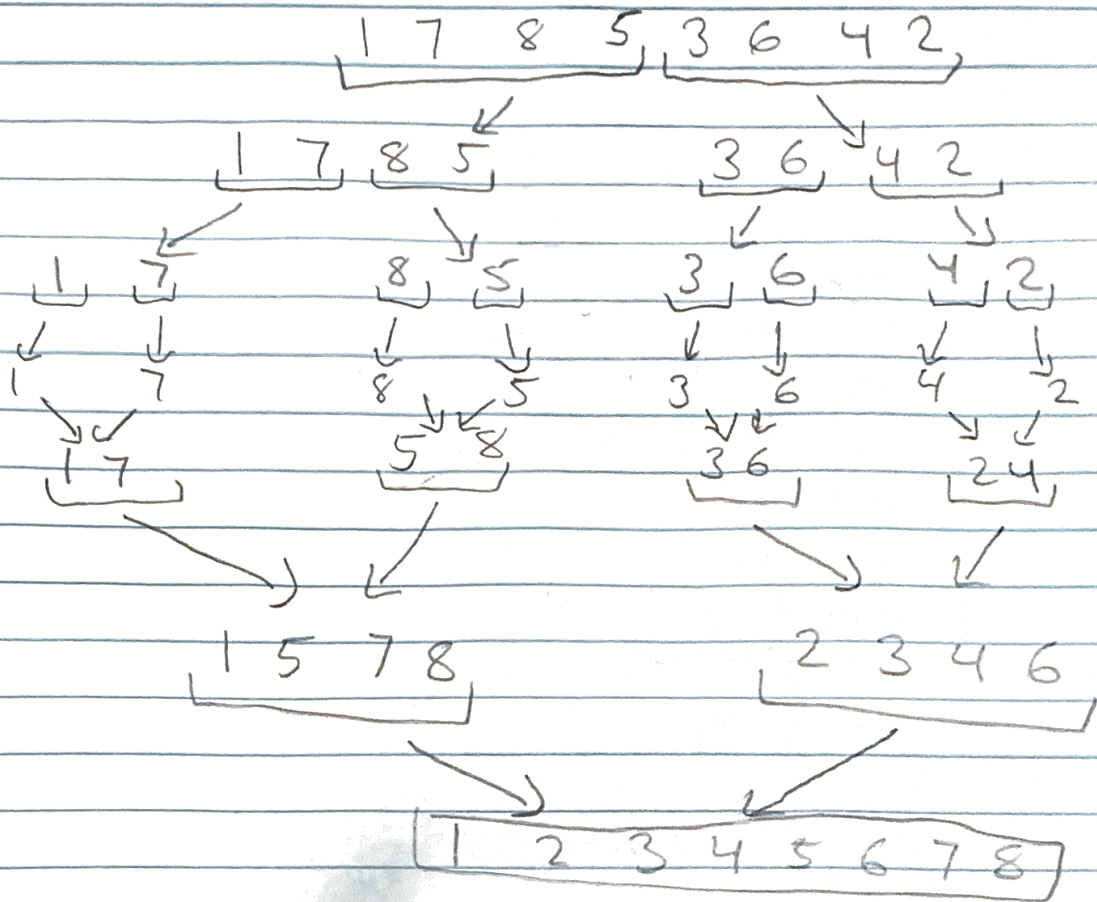 1 7 8 5 3 6 4 2
1 7 8 5 3 6 4 2
1 7 8 5 3 6 4 2
1 7 8 5 3 6 4 2
1 7 5 8 3 6 2 4
1 5 7 8 2 3 4 6
1 2 3 4 5 6 7 8